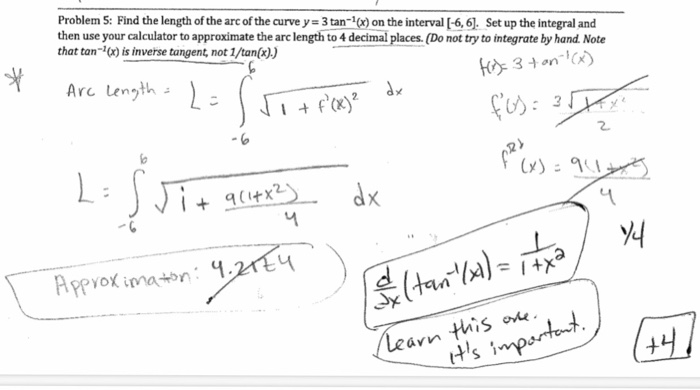 Problem 5: Find the length of the arc of the curve y = 3 tan⁻¹(x) on the interval [-6, 6]. Set up the integral and
then use your calculator to approximate the arc length to 4 decimal places. (Do not try to integrate by hand. Note
that tan⁻¹(x) is inverse tangent, not 1/tan(x).)
f(x) = 3 tan⁻¹(x)
Arc Length = L = ∫₋₆⁶ √(1 + f'(x)²) dx
f'(x) = 3√(1+x²)/2
f'²(x) = 9(1+x²)/4
L = ∫₋₆⁶ √(1 + 9(1+x²)/4) dx
Y4
d/dx (tan⁻¹(x)) = 1/(1+x²)
Approximation:
Learn this one.
It's important.
+4